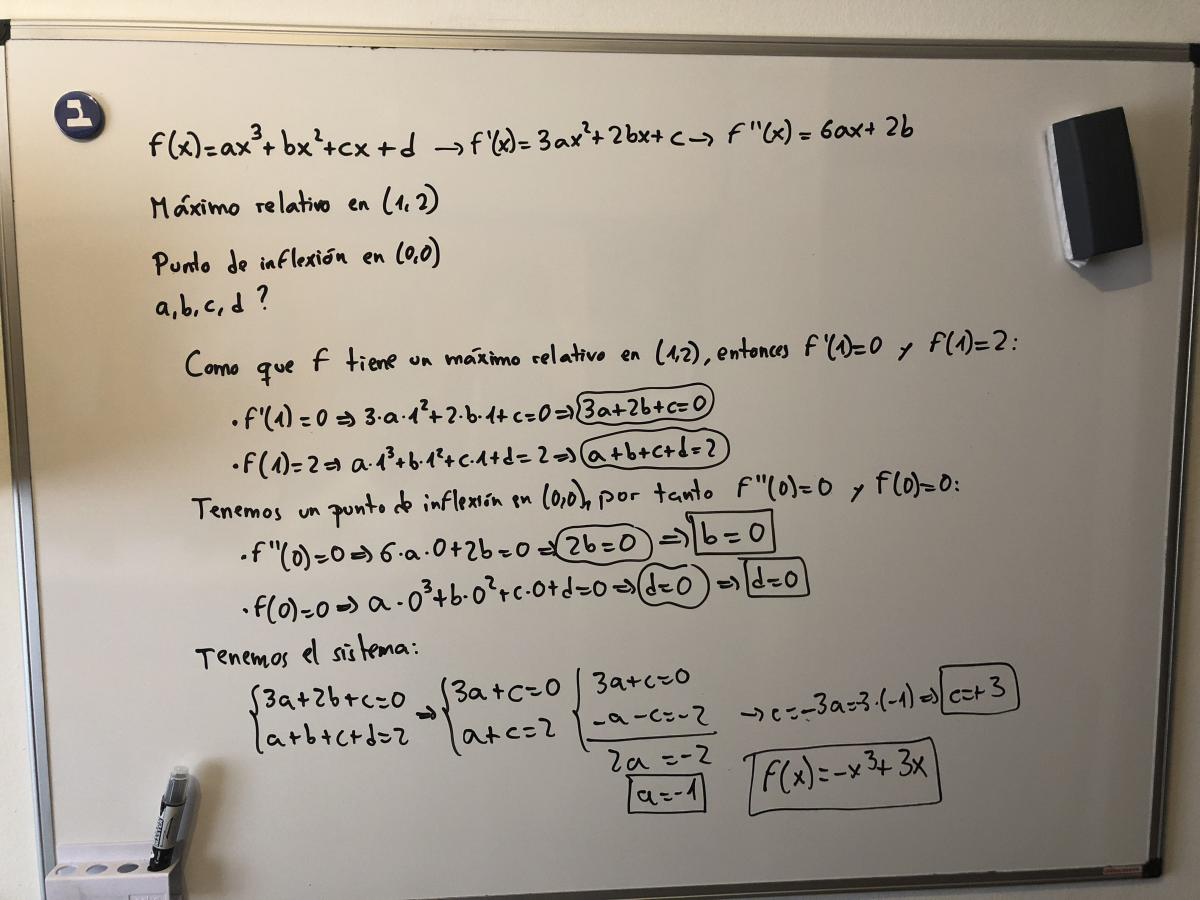 ב
f(x)=ax³+bx²+cx+d → f'(x)=3ax²+2bx+c → f''(x)=6ax+2b
Máximo relativo en (1,2)
Punto de inflexión en (0,0)
a,b,c,d ?
Como que f tiene un máximo relativo en (1,2), entonces f'(1)=0 y f(1)=2:
·f'(1)=0 ⇒ 3·a·1²+2·b·1+c=0 ⇒ 3a+2b+c=0
·f(1)=2 ⇒ a·1³+b·1²+c·1+d=2 ⇒ a+b+c+d=2
Tenemos un punto de inflexión en (0,0), por tanto f''(0)=0 y f(0)=0:
·f''(0)=0 ⇒ 6·a·0+2b=0 ⇒ 2b=0 ⇒ b=0
·f(0)=0 ⇒ a·0³+b·0²+c·0+d=0 ⇒ d=0 ⇒ d=0
Tenemos el sistema:
{3a+2b+c=0 ⇒ {3a+c=0 {3a+c=0
a+b+c+d=2 a+c=2 -a-c=-2 → c=-3a=-3·(-1) ⇒ c=+3
2a=-2
a=-1 f(x)=-x³+3x